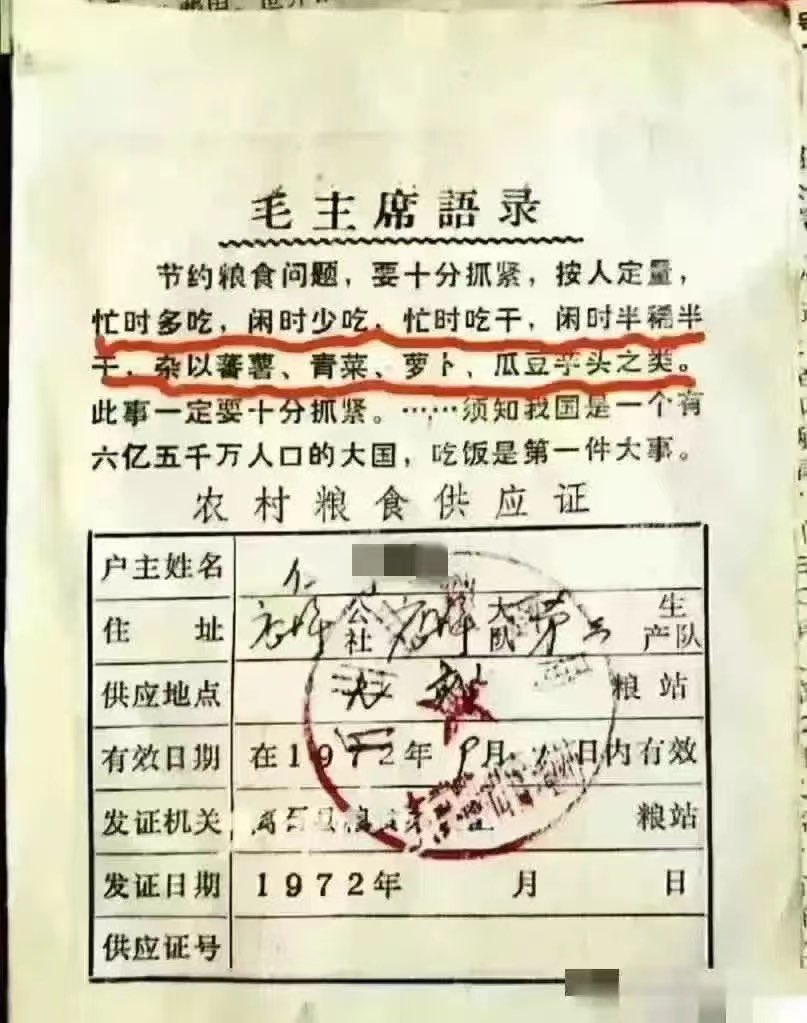 毛主席語录
节约粮食问题，要十分抓紧，按人定量，
忙时多吃，闲时少吃，忙时吃干，闲时半稀半
干，杂以蕃薯、青菜、萝卜、瓜豆芋头之类。
此事一定要十分抓紧。……须知我国是一个有
六亿五千万人口的大国，吃饭是第一件大事。
农村粮食供应证
户主姓名
住 址 公社 大队 第 生产队
供应地点 粮站
有效日期 在1972年9月 日内有效
发证机关 粮站
发证日期 1972年 月 日
供应证号